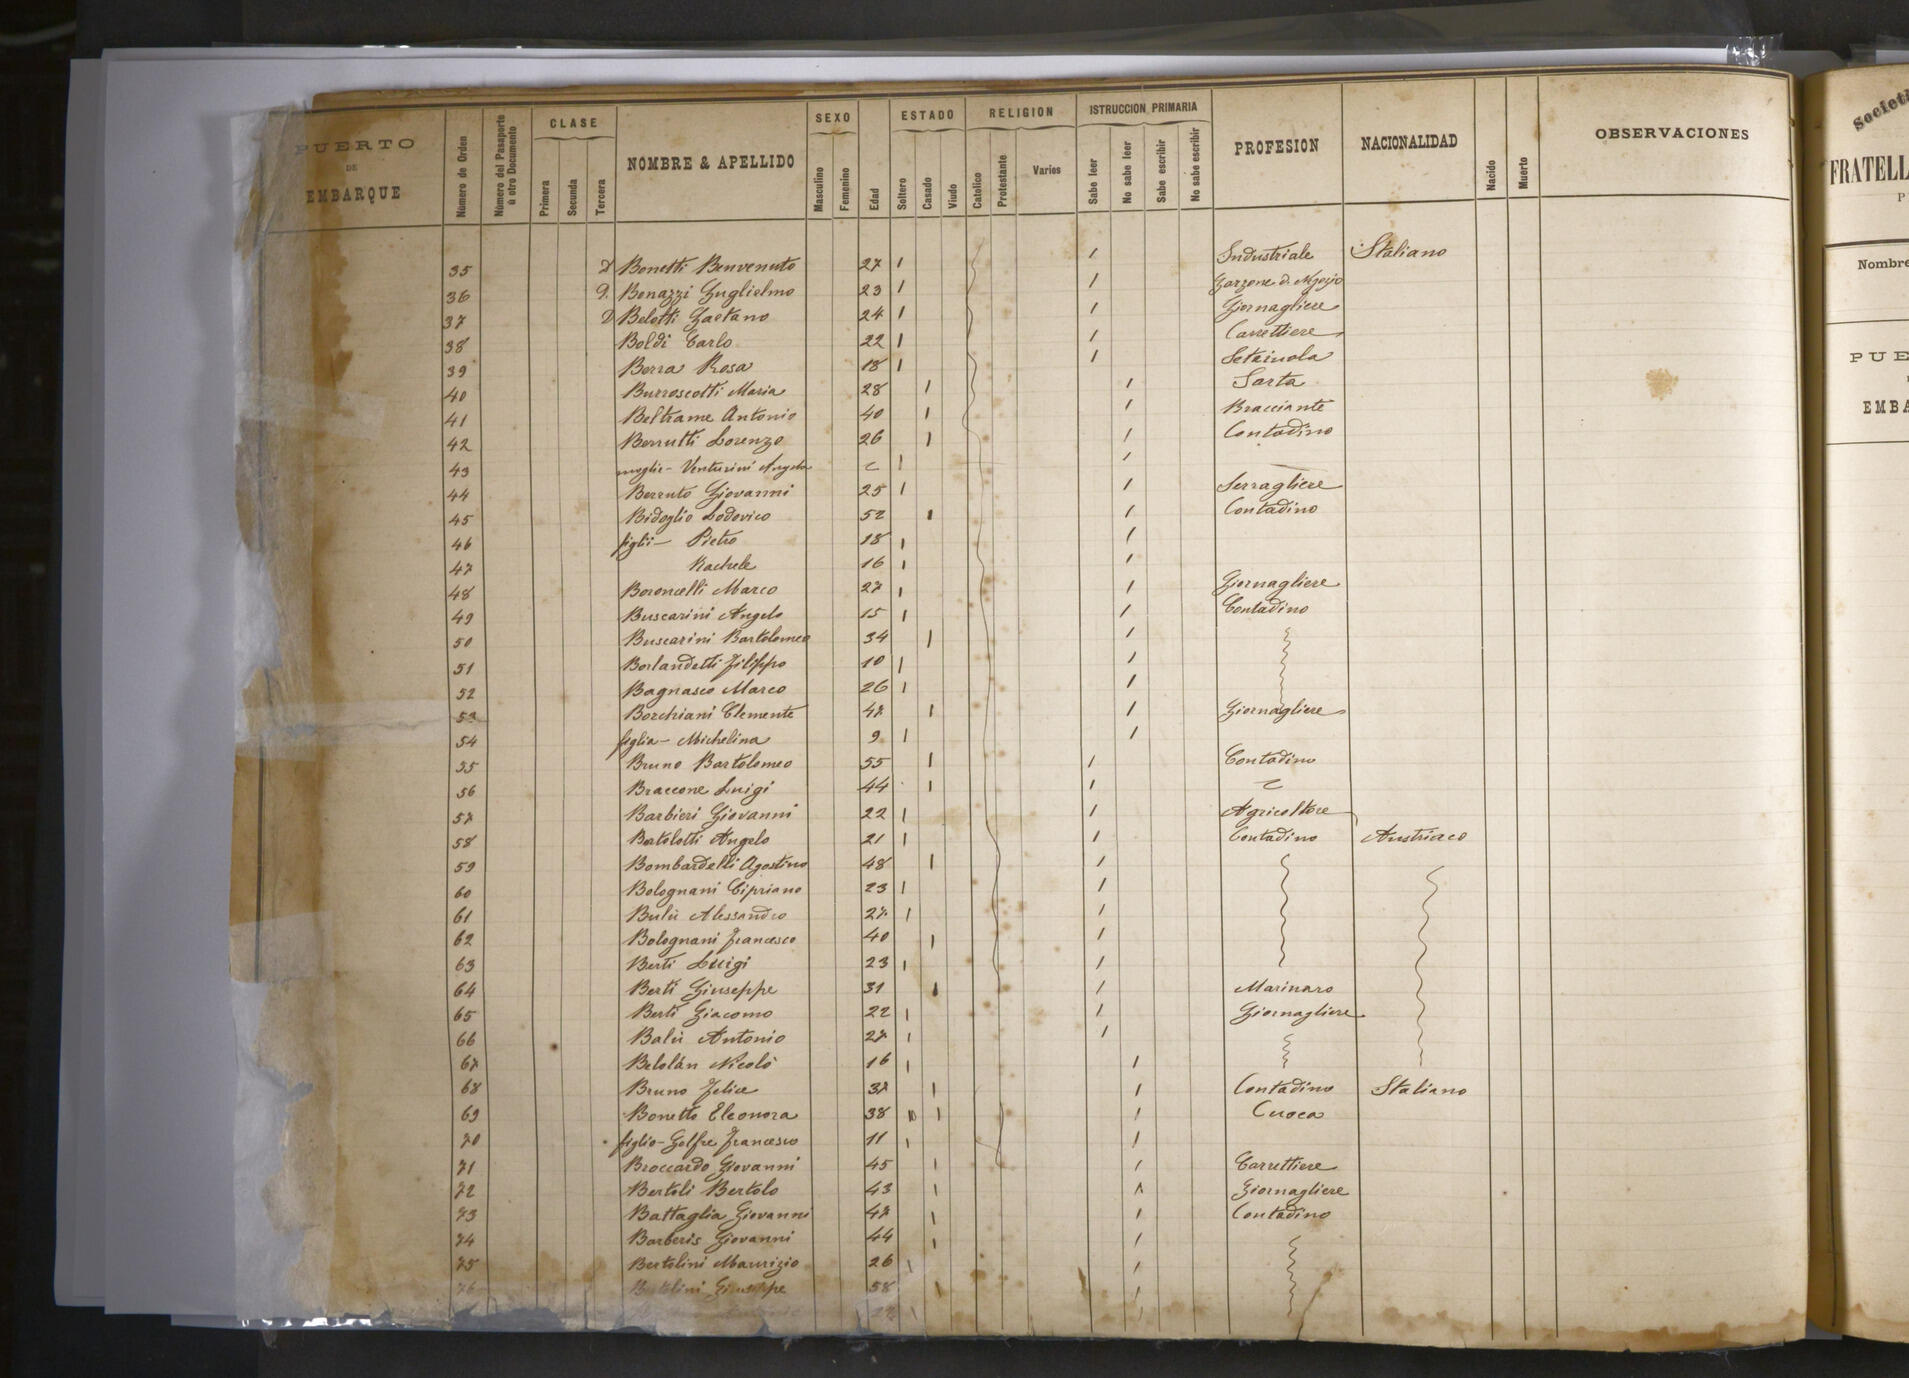 PUERTO DE EMBARQUE
Número de Orden
Número del Pasaporte ú otro Documento
CLASE
Primera
Secunda
Tercera
NOMBRE & APELLIDO
SEXO
Masculino
Femenino
Edad
ESTADO
Soltero
Casado
Viudo
RELIGION
Catolico
Protestante
Varios
ISTRUCCION PRIMARIA
Sabe leer
No sabe leer
Sabe escribir
No sabe escribir
PROFESION
NACIONALIDAD
Nacido
Muerto
OBSERVACIONES
35 Bonetti Benvenuto 27 Industriale Italiano
36 Benazzi Guglielmo 23 Garzone di
37 Belotti Gaetano 24 Giornagliere
38 Boldi Carlo 22 Carrettiere
39 Berra Rosa 18 Setaiuola
40 Burroscotti Maria 28 Sarta
41 Beltrame Antonio 40 Bracciante
42 Berrutti Lorenzo 26 Contadino
43 moglie - Venturini Angela
44 Berruto Giovanni 25 Serragliere
45 Bidoglio Lodovico 52 Contadino
46 figlii - Pietro 18
47 Rachele 16
48 Boroncelli Marco 27 Giornagliere
49 Buscarini Angelo 15 Contadino
50 Buscarini Bartolomeo 34
51 Borlandetti Filippo 10
52 Bagnasco Marco 26
53 Borchiani Clemente 47 Giornagliere
54 figlia - Michelina 9
55 Bruno Bartolomeo 55 Contadino
56 Braccone Luigi 44
57 Barbieri Giovanni 22 Agricoltore
58 Bortolotti Angelo 21 Contadino Austriaco
59 Bombardelli Agostino 48
60 Bolognani Cipriano 23
61 Bulù Alessandro 27
62 Bolognani Francesco 40
63 Berti Luigi 23
64 Berti Giuseppe 31 Marinaro
65 Berti Giacomo 22 Giornagliere
66 Balù Antonio 27
67 Belolàn Nicolò 16
68 Bruno Felice 37 Contadino Italiano
69 Bonetto Eleonora 38 Cuoca
70 figlio - Golfre Francesco 11
71 Broccardo Giovanni 45 Carrettiere
72 Bertoli Bertolo 43 Giornagliere
73 Battaglia Giovanni 47 Contadino
74 Barberis Giovanni 44
75 Bertolini Maurizio 26
76 Bertolini Giuseppe 58
Societ
FRATELL
P
Nombre
PUE
EMBA